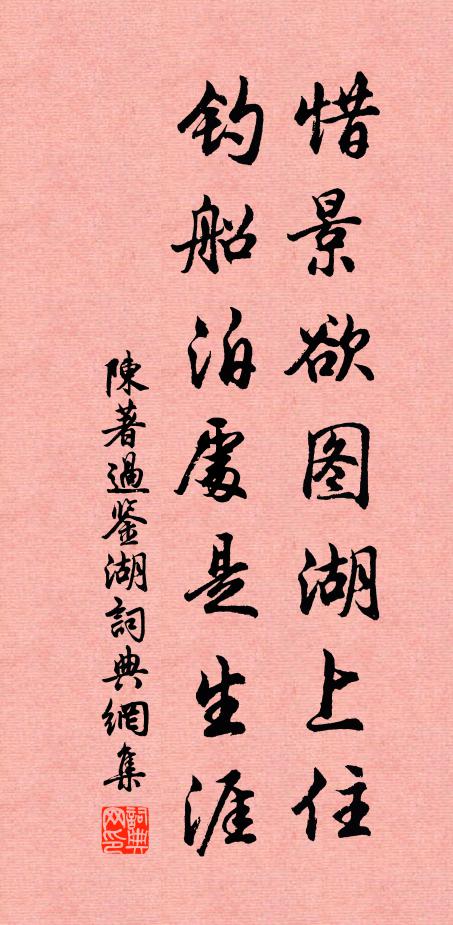 惜景欲图湖上住
钓船泊處是生涯
陳著過鉴湖詞典網集
詞典网印